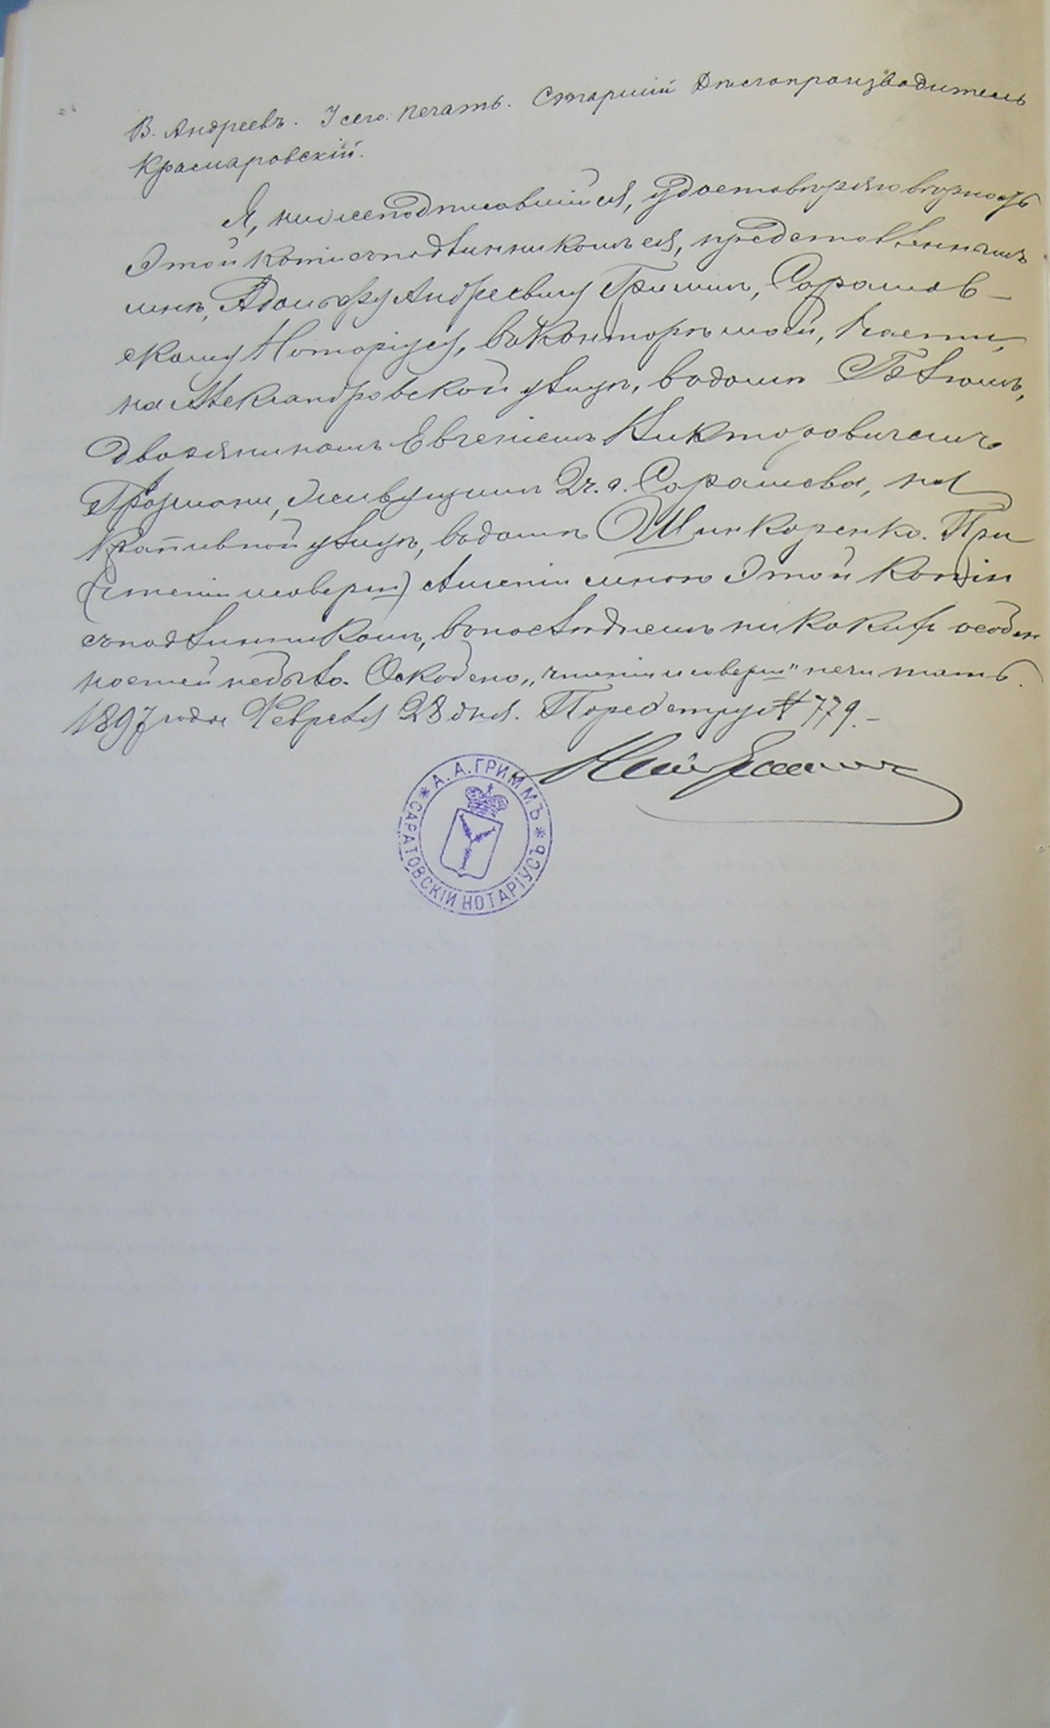 В. Андреевъ. У сего. печать. Старшій Дѣлопроизводитель
Я, нижеподписавшійся, удостовѣряю вѣрность
этой копіи съ подлинникомъ ея, представленнымъ
мнѣ, Адольфу Андреевичу Гриммъ, Саратов-
скому Нотаріусу, въ конторѣ моей, части,
на Александровской улицѣ, въ домѣ
дворяниномъ Евгеніемъ Викторовичемъ
живущимъ 2 ч. г. Саратова, на
Крапивной улицѣ, въ домѣ Шинкаренко. При
(чтеніи и сверш) сличеніи мною этой копіи
съ подлинникомъ, въ послѣднемъ никакихъ особен
ностей не было. Оскоблено „чтеніи и сверш" не читать.
1897 года Февраля 28 дня. По реестру № 779.-
* А. А. ГРИММЪ *
САРАТОВСКІЙ НОТАРІУСЪ